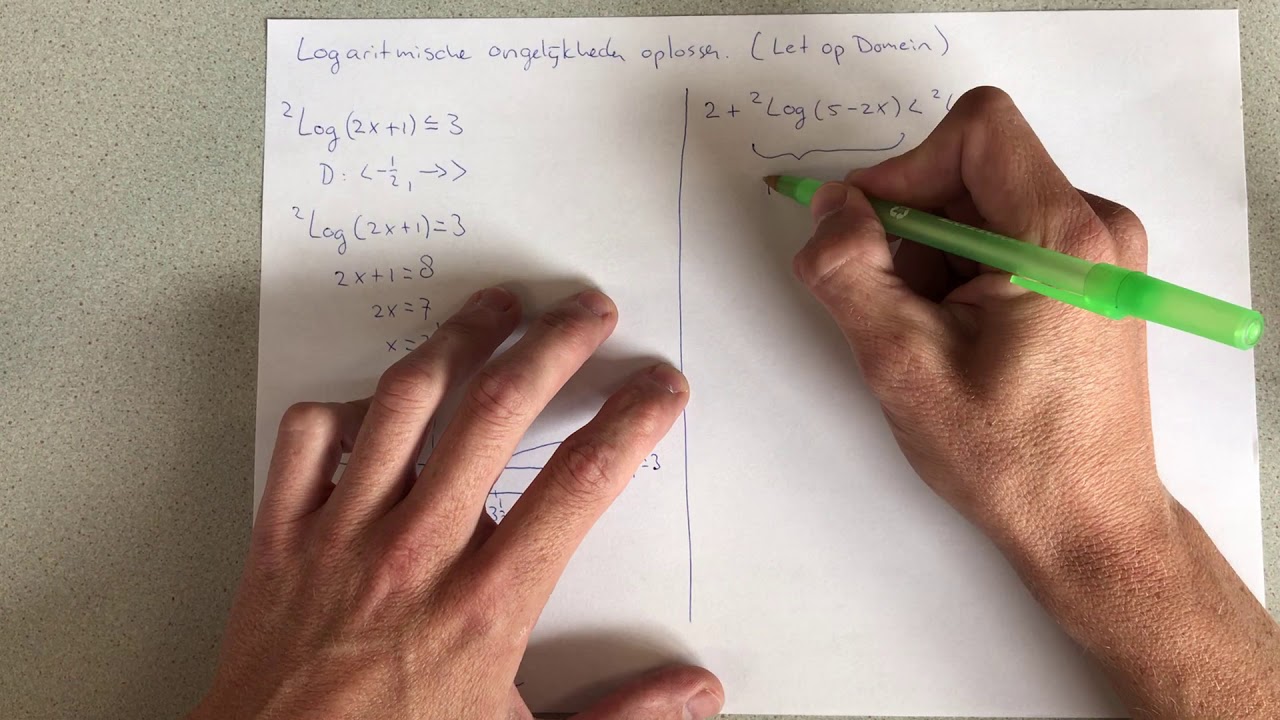 Logaritmische ongelijkheden oplossen. (Let op Domein)
²Log(2x+1) ≤ 3
D: <-½, →>
²Log(2x+1)=3
2x+1=8
2x=7
x=
=3
3½
2 + ²Log(5-2x) < ²